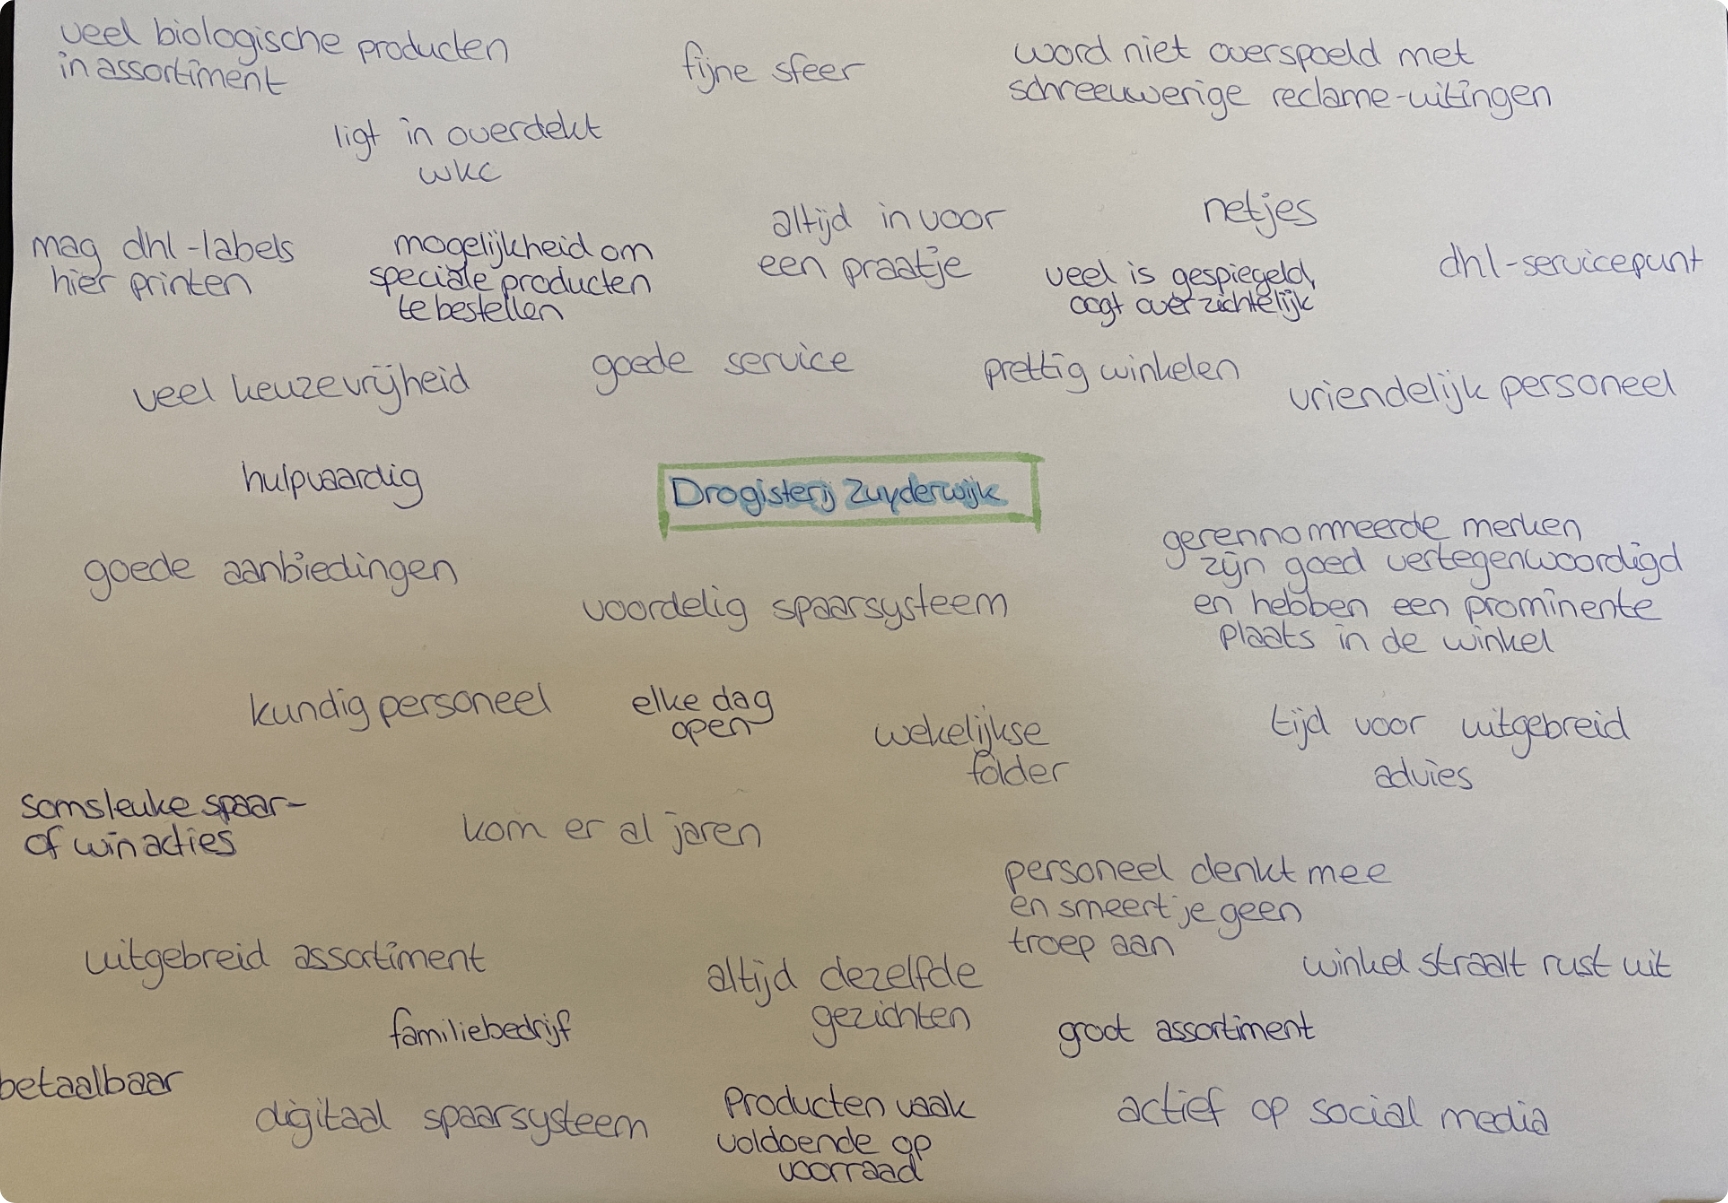 veel biologische producten
in assortiment
fijne sfeer
word niet overspoeld met
schreeuwerige reclame-uitingen
ligt in overdekt
wkc
mag dhl-labels
hier printen
mogelijkheid om
speciale producten
te bestellen
altijd in voor
een praatje
netjes
veel is gespiegeld,
oogt overzichtelijk
dhl-servicepunt
veel keuzevrijheid
goede service
prettig winkelen
vriendelijk personeel
hulpvaardig
Drogisterij Zuyderwijk
goede aanbiedingen
voordelig spaarsysteem
gerennommeerde merken
zijn goed vertegenwoordigd
en hebben een prominente
plaats in de winkel
kundig personeel
elke dag
open
wekelijkse
folder
tijd voor uitgebreid
advies
soms leuke spaar-
of winacties
kom er al jaren
personeel denkt mee
en smeert je geen
troep aan
uitgebreid assortiment
altijd dezelfde
gezichten
winkel straalt rust uit
familiebedrijf
groot assortiment
betaalbaar
digitaal spaarsysteem
Producten vaak
voldoende op
voorraad
actief op social media